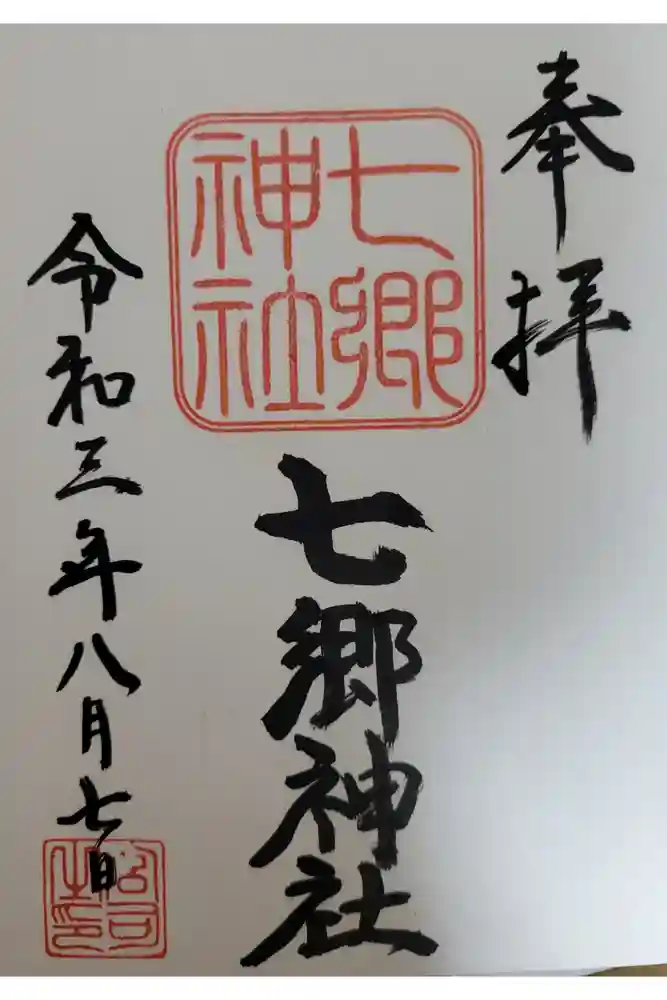 奉拝
七郷
神社
七郷神社
令和三年八月七日